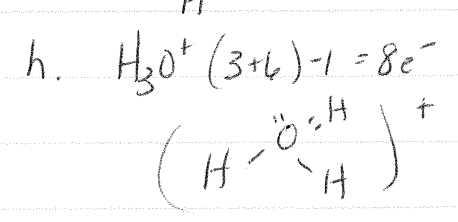 H
h. H₃O⁺ (3+6)-1 = 8e⁻
(H - Ö : H - H)⁺